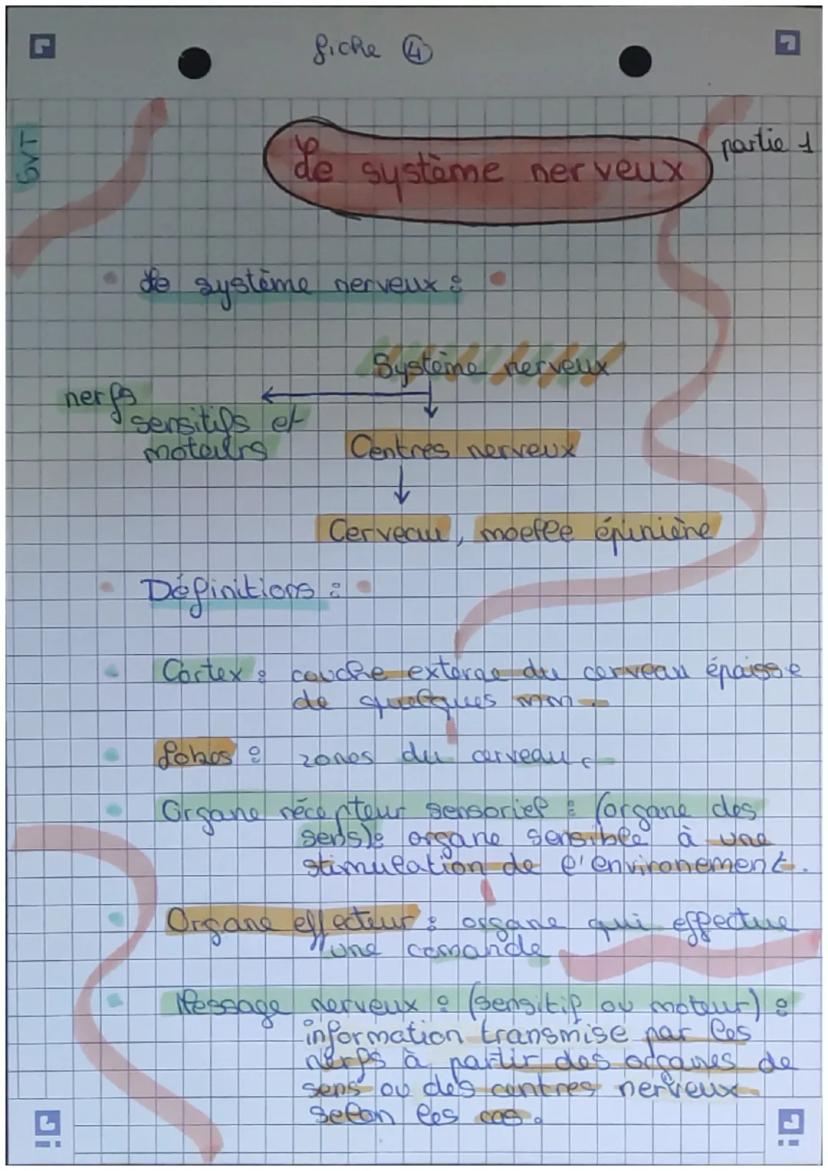 fiche ④
SVT
Le système nerveux
partie 1
Le système nerveux :
Système nerveux
nerfs
sensitifs et
moteurs
Centres nerveux
Cerveau, moelle épinière
Définitions :
Cortex : couche externe du cerveau épaisse
de quelques mm.
Lobes : zones du cerveau.
Organe récepteur sensoriel : (organe des
sens) : organe sensible à une
stimulation de l'environement.
Organe effecteur : organe qui effectue
une comande
Message nerveux : (sensitif ou moteur) :
information transmise par les
nerfs à partir des organes de
sens ou des centres nerveux
selon les cas.